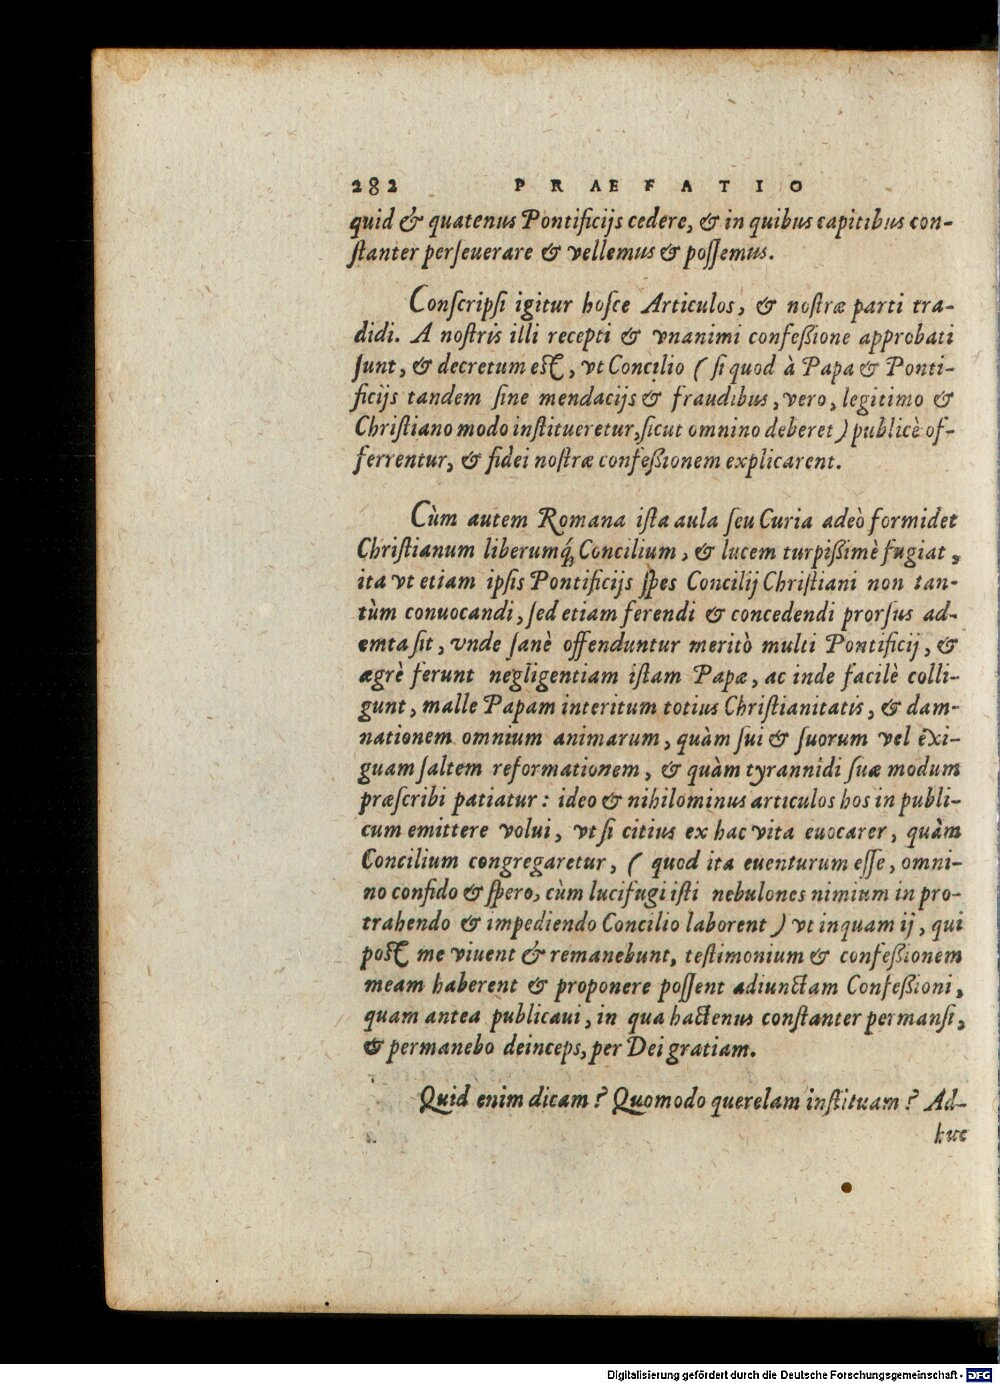 282 PRAEFATIO
quid & quatenus Pontificijs cedere, & in quibus capitibus con-
ſtanter perſeuerare & vellemus & poſſemus.
Conſcripſi igitur hoſce Articulos, & noſtræ parti tra-
didi. A noſtris illi recepti & vnanimi confeßione approbati
ſunt, & decretum eſt, vt Concilio ( ſi quod à Papa & Ponti-
ficijs tandem ſine mendacijs & fraudibus, vero, legitimo &
Chriſtiano modo inſtitueretur, ſicut omnino deberet ) publicè of-
ferrentur, & fidei noſtræ confeßionem explicarent.
Cùm autem Romana iſta aula ſeu Curia adeò formidet
Chriſtianum liberumq́; Concilium, & lucem turpißimè fugiat,
ita vt etiam ipſis Pontificijs ſpes Concilij Chriſtiani non tan-
tùm conuocandi, ſed etiam ferendi & concedendi prorſus ad-
emta ſit, vnde ſanè offenduntur meritò multi Pontificij, &
ægrè ferunt negligentiam iſtam Papæ, ac inde facilè colli-
gunt, malle Papam interitum totius Chriſtianitatis, & dam-
nationem omnium animarum, quàm ſui & ſuorum vel exi-
guam ſaltem reformationem, & quàm tyrannidi ſuæ modum
præſcribi patiatur : ideo & nihilominus articulos hos in publi-
cum emittere volui, vt ſi citius ex hac vita euocarer, quàm
Concilium congregaretur, ( quod ita euenturum eſſe, omni-
no confido & ſpero, cùm lucifugi iſti nebulones nimium in pro-
trahendo & impediendo Concilio laborent ) vt inquam ij, qui
poſt me viuent & remanebunt, teſtimonium & confeßionem
meam haberent & proponere poſſent adiunctam Confeßioni,
quam antea publicaui, in qua hactenus conſtanter permanſi,
& permanebo deinceps, per Dei gratiam.
Quid enim dicam ? Quomodo querelam inſtituam ? Ad-
huc
Digitalisierung gefördert durch die Deutsche Forschungsgemeinschaft - DFG